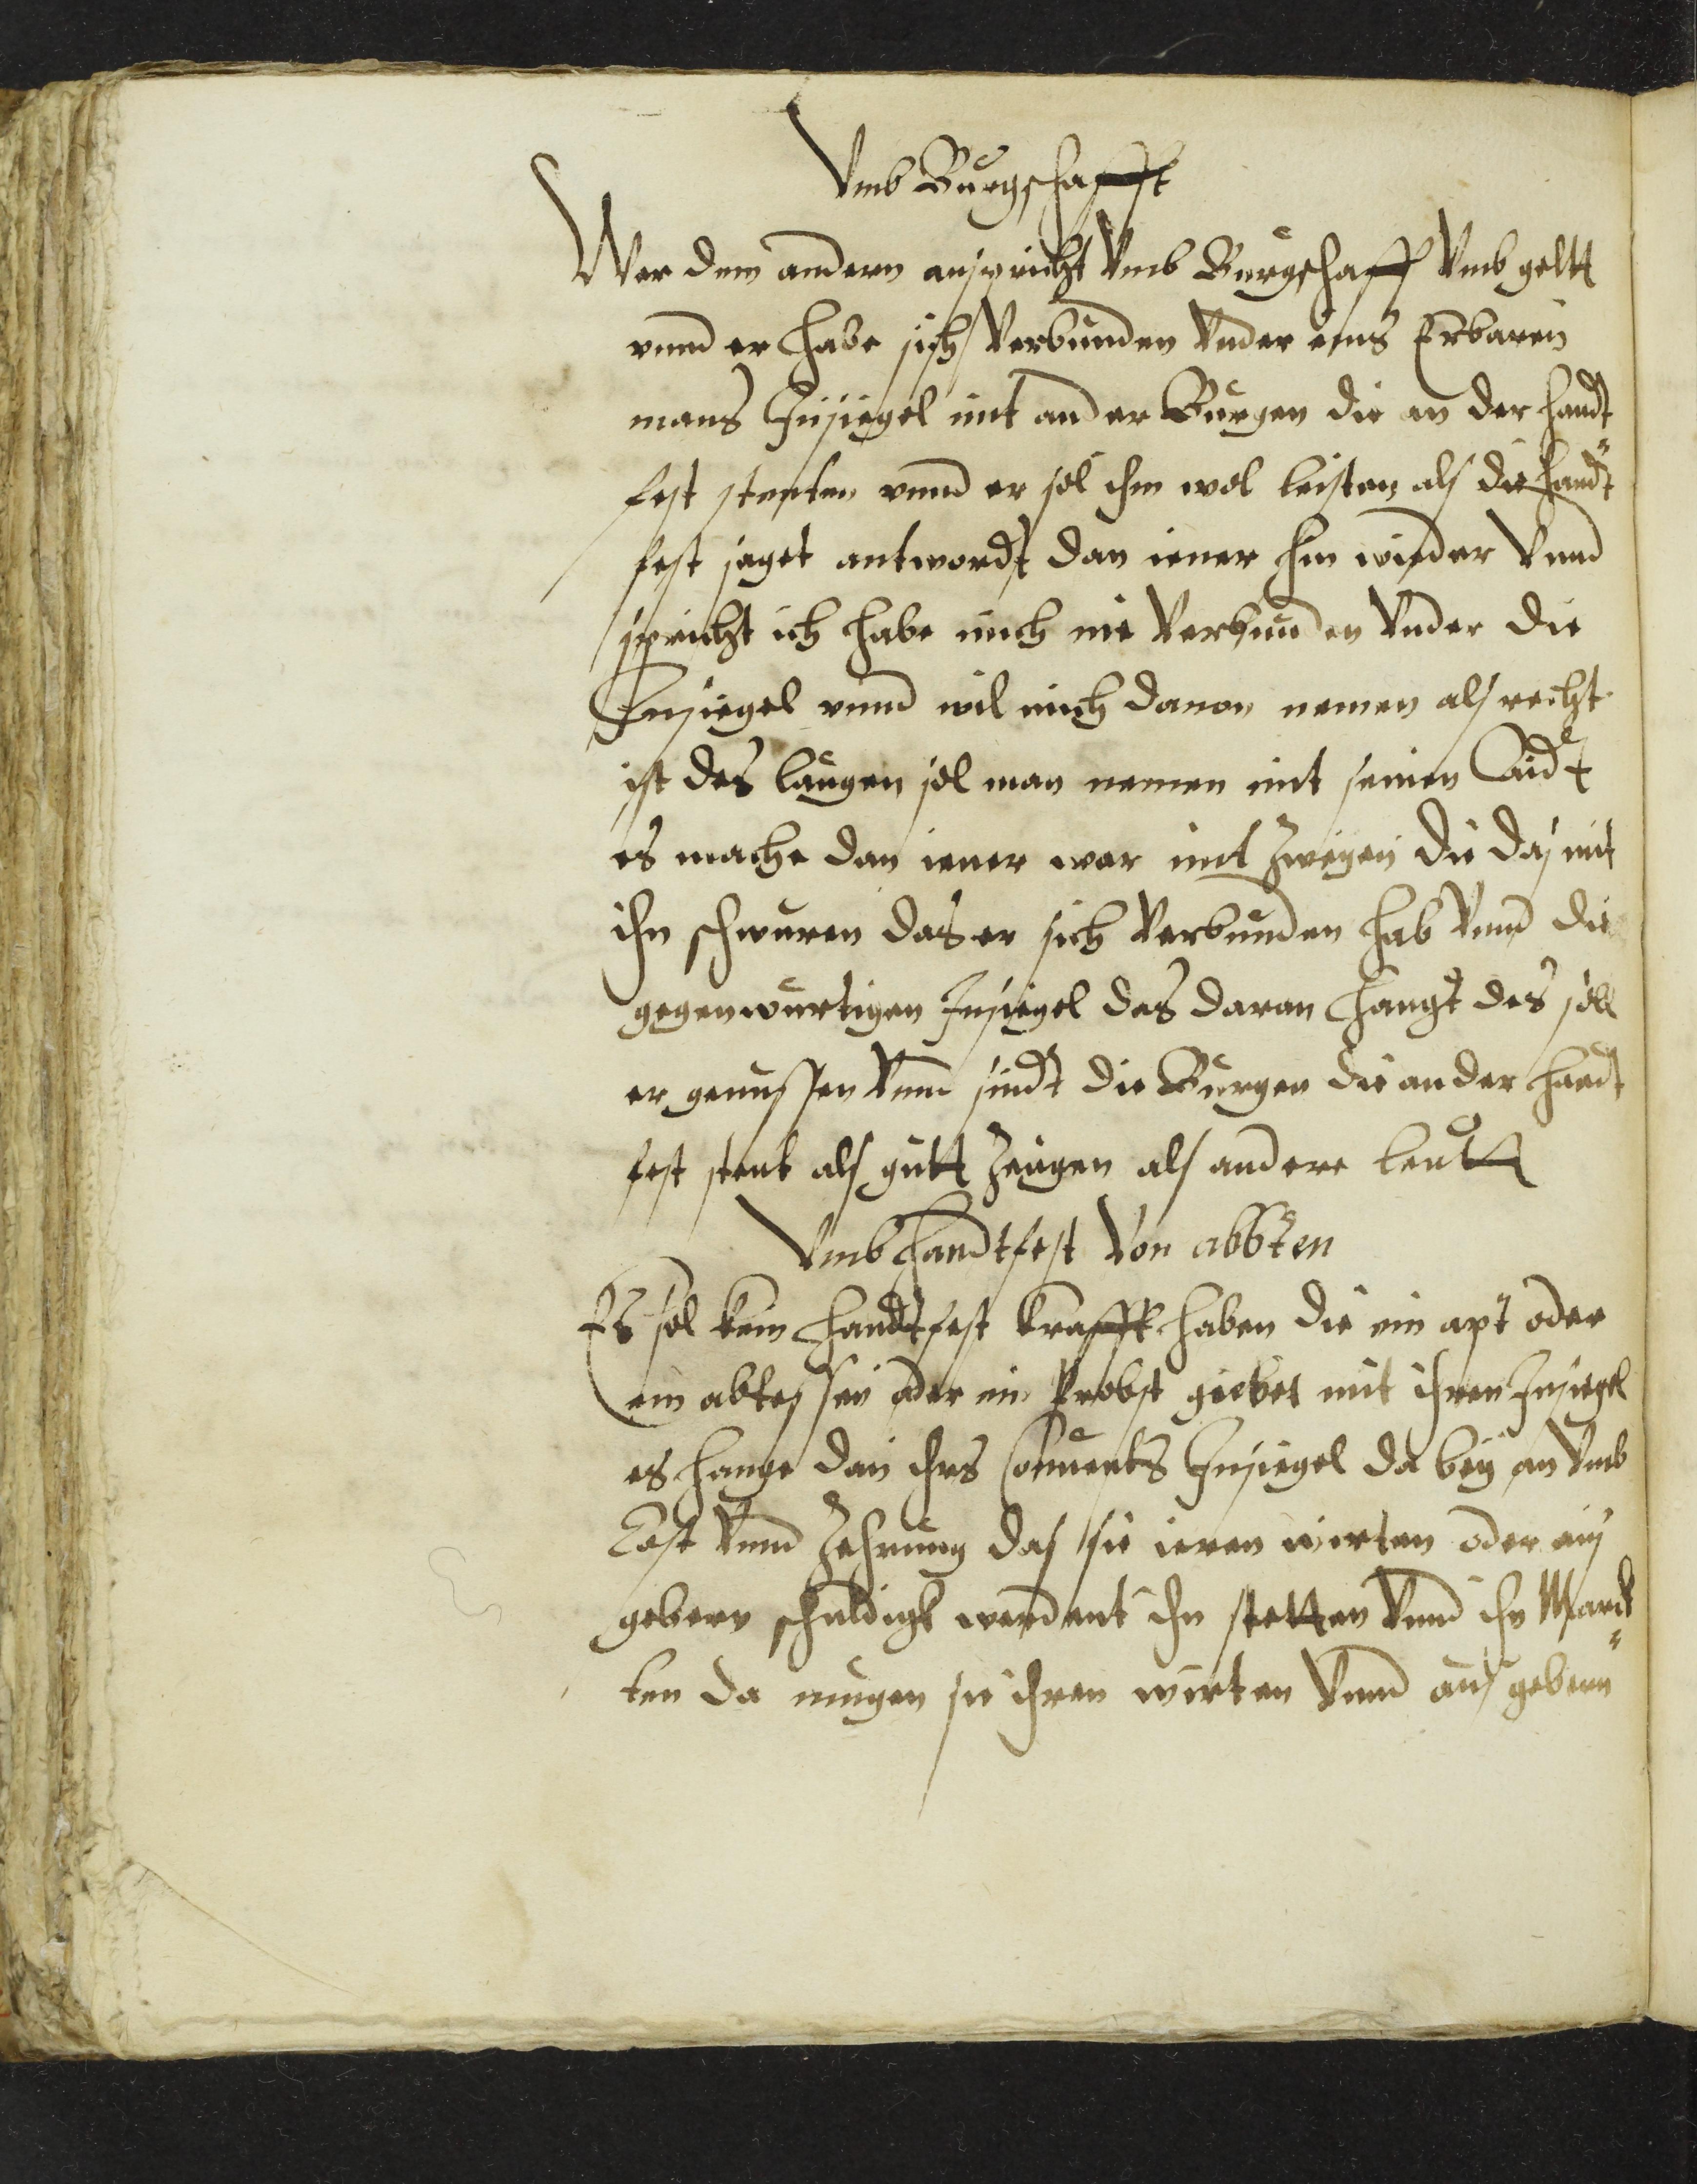 Vmb Burgschafft
Wer dem andern anspricht Vmb Burgschafft Vmb geltt
vnnd er habe sich Verbunden Vnder eins Erbaren
mans Insiegel mit ander Burgen die an der handt
fest stenten vnnd er sol ihm wol leisten als die handt
fest saget antwordt dan iener hin wieder Vnnd
spricht ich habe mich nie Verbunden Vnder die
Insiegel vnnd wil mich dauon nemen als recht
ist des laugen sol man nemen mit seinen Aidt
es mache dan iener war mit zweyen die das mit
ihn schwuren das er sich Verbunden hab Vnnd die
gegenwurtigen Insiegel das daran hangt des soll
er genussen Vnnd sindt die Burgen die an der handt
fest stent als gutt Zeugen als andere leutt
Vmb Handtfest Von abbten
Es sol kein handtfest krafft haben die ein apt oder
ein abtessin oder ein Probst giebet mit ihren Insiegel
es hange dan ihrs Conuents Insiegel da bey an Vmb
Cost Vnnd Zehrung das sie ieren wirten oder aus
gebern schuldigk werdent ihn stetten Vnnd ihn Marck
ten da mugen sie ihren wirten Vnnd aus gebern